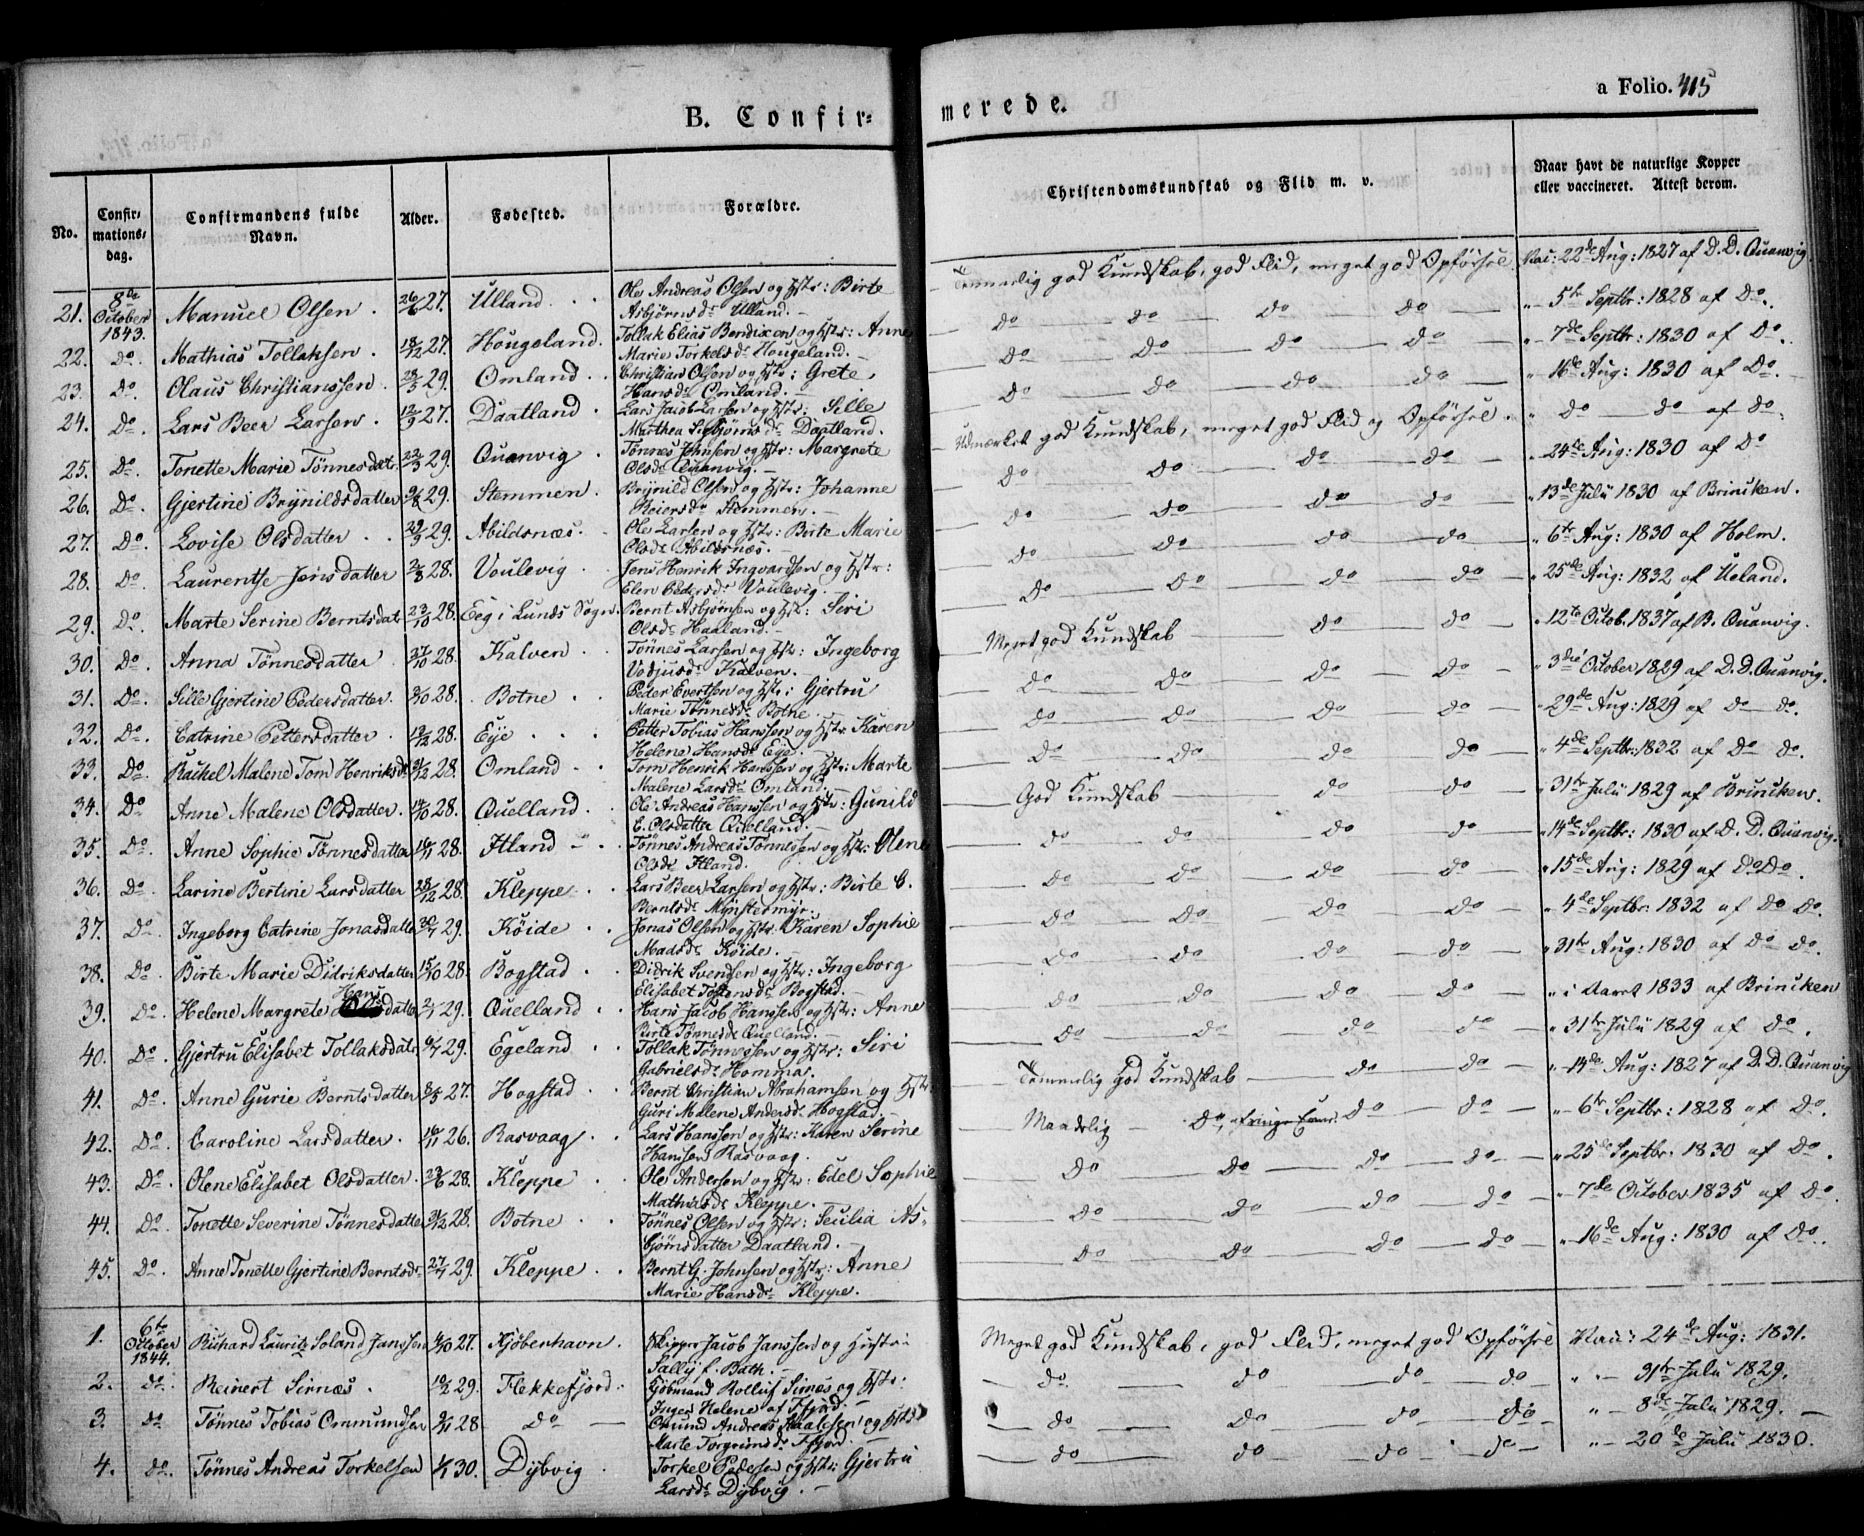 B. Confir=
merede.
a Folio. 415
No.
Confir=
mations=
dag.
Confirmandens fulde
Navn.
Alder.
Fødested.
Forældre.
Christendomskundskab og Flid m. v.
Naar havt de naturlige Kopper
eller vaccineret. Attest derom.
21. 8de October 1843. Manuel Olsen . 26/6 27. Ulland. . . Ole Andreas Olsen og Hstr: Birte
Asbjørnsdr Ulland.
Temmerlig god Kundskab, god Flid, meget god Opførsel. Vac: 22de Aug: 1827 af D. D. Quanvig
22. Do. Mathias Tollaksen . 18/12 27. Hougeland. Tollak Elias Bendixen og Hstr: Anne
Marie Torkelsdr Hougeland.
Do Do Do Do „ 5te Septbr: 1828 af Do.
23. Do. Olaus Christianssen . 28/5 29. Omland . . Christian Olsen og Hstr: Grete
Hansdr Omland.
Do Do Do Do „ 7de Septbr: 1830 af Do.
24. Do. Lars Beer Larsen . 12/9 27. Daatland . Lars Jacob Larsen og Hstr: Sille
Marthea Sigbjørnsdr Daatland.
Do Do Do Do „ 16de Aug: 1830 af Do.
25. Do. Tonette Marie Tønnesdatr 22/3 29. Quanvig . Tønnes Johnsen og Hstr: Margrete
Olsdr Quanvig.
Udmærket god Kundskab, meget god Flid og Opførsel. „ Do Do af Do.
26. Do. Gjertine Brynildsdatter 9/8 29. Stemmen . Brynild Olsen og Hstr: Johanne
Reiersdr Stemmen.
Do Do Do Do „ 24de Aug: 1830 af Do
27. Do. Lovise Olsdatter . . 29/9 29. Abildsnæs. Ole Larsen og Hstr: Birte Marie
Olsdr Abildsnæs.
Do Do Do Do „ 13de Julii 1830 af Brincken.
28. Do. Laurentse Jensdatter 27/8 28. Voulevig . Jens Henrik Ingvardsen og Hstr:
Elen Pedersdr Voulevig.
Do Do Do Do „ 6te Aug: 1830 af Holm.
29. Do. Marte Serine Berntsdatr 23/10 28. Eeg i Lunds Sogn. Bernt Asbjørnsen og Hstr: Siri
Olsdr Haaland.
Do Do Do Do „ 25de Aug: 1832 af Ueland.
30. Do. Anna Tønnesdatter 27/10 28. Kalven . . Tønnes Larsen og Hstr: Ingeborg
Kalven.
Meget god Kundskab Do Do „ 12te Octob. 1837 af B. Quanvig.
31. Do. Sille Gjertine Pedersdatter. 3/10 28. Botne . . Peder Evertsen og Hstr: Gjertru
Marie Tønnesdr Bothe
Do Do Do Do „ 3die October 1829 af D. D. Quanvig.
32. Do. Catrine Pettersdatter . 19/12 28. Eije . . . Petter Tobias Hanssen og Hstr: Karen
Helene Hansdr Eije.
Do Do Do Do „ 29de Aug: 1829 af Do Do.
33. Do. Rackel Malene Tom Henriksdr 9/12 28. Omland . . Tom Henrik Hanssen og Hstr: Marte
Malene Larsdr Omland.
Do Do Do Do „ 4de Septbr: 1832 af Do Do.
34. Do Anne Malene Olsdatter. 14/10 28. Quelland . . Ole Andreas Hanssen og Hstr: Gunild
E. Olsdatter Quelland.
God Kundskab Do Do „ 31te Julii 1829 af Brincken.
35. Do. Anne Sophie Tønnesdatter 16/11 28. Itland . . Tønnes Andreas Tønnessen og Hstr: Olene
Olsdr Itland.
Do Do Do Do „ 14de Septbr: 1830 af D. D. Quanvig.
36. Do. Larine Bertine Larsdatter 28/12 28. Kleppe . . Lars Beer Larsen og Hstr: Birte C.
Berntsdr Mynstermyr.
Do Do Do Do „ 15de Aug: 1829 af Do Do.
37. Do. Ingeborg Catrine Jonasdatter 30/1 29. Köide . . Jonas Olsen og Hstr: Karen Sophie
Madsdr Köide.
Do Do Do Do „ 4de Septbr. 1832 af Do Do.
38. Do Birte Marie Didriksdatter 15/10 28. Bogstad . . Didrik Svendsen og Hstr: Ingeborg
Elisabet Tostensdr Bogstad.
Do Do Do Do „ 31te Aug: 1830 af Do Do.
39. Do. Helene Margrete Hansdatter 2/1 29. Quelland . . Hans Jacob Hanssen og Hstr: Anne
Birte Tønnesdr Quelland.
Do Do Do Do „ i Aaret 1833 af Brincken
40. Do. Gjertru Elisabet Tollaksdatr 6/7 29. Egeland . . Tollak Tønnessen og Hstr: Siri
Gabrielsdr Hommar.
Do Do Do Do „ 31te Julii 1829 af Do.
41. Do. Anne Gurie Berntsdatter 8/5 27. Hogstad . . Bernt Christian Abrahamsen og Hstr
Guri Malene Andersdr Hogstad.
Temmelig God Kundskab Do Do „ 14de Aug: 1827 af D. D. Quanvig
42. Do. Caroline Larsdatter . 16/11 26. Rasvaag . Lars Hanssen og Hstr: Karen Serine
Hansdr Rasvaag.
Maadelig Do, af ringe Evner. Do Do „ 6te Septbr: 1828 af Do.
43. Do. Olene Elisabet Olsdatter . 23/6 28. Kleppe . . Ole Andersen og Hstr: Edel Sophie
Mathiasdr Kleppe.
Do Do Do Do „ 25de Septbr. 1830 af Do.
44. Do. Tonette Severine Tønnesdatter 31/12 28. Botne . . Tønnes Olsen og Hstr: Secilia As-
bjørnsdatter Daatland.
Do Do Do Do „ 7de October 1835 af Do.
45. Do. Anne Tonette Gjertine Berntsdr 27/7 29. Kleppe . . Bernt G. Johnsen og Hstr: Anne
Marie Hansdr Kleppe.
Do Do Do Do „ 16de Aug: 1830 af Do.
1. 6te October 1844. Richard Lauritz Soland Janssen 4/10 27. Kjöbenhavn. Skipper Jacob Janssen og Hustru
Sally f. Bath.
Meget god Kundskab, god Flid, meget god Opførsel Vac: 24de Aug: 1831.
2. Do. Reinert Sirnæs . 10/2 29. Flekkefjord. Kjöbmand Rolluf Sirnæs og Hstr:
Inger Helene af Ffjord.
Do Do Do Do „ 31te Julii 1829.
3. Do Tønnes Tobias Ommundsen 9/11 28 Do Omund Andreas og Hstr
Marte Torgrimsdr Ffjord.
Do Do Do Do „ 8de Julii 1829.
4. Do. Tønnes Andreas Torkelsen 1/1 30. Dybvig . Torkel Pedersen og Hstr: Gjertru
Larsdr Dybvig.
Do Do Do Do „ 20de Julii 1830.